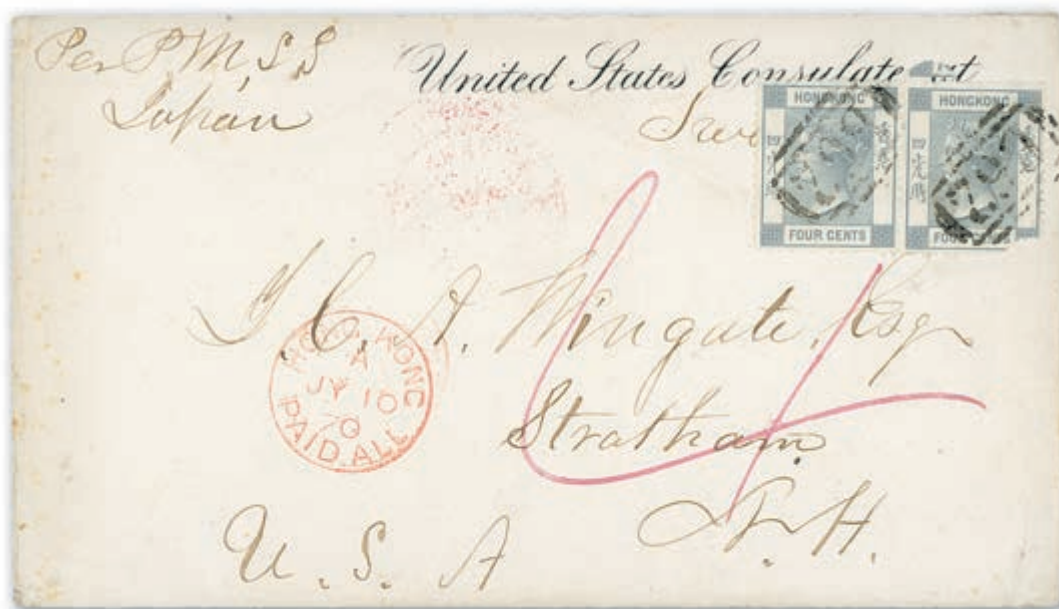 Per P.M.S.S
Japan
United States Consulate at
HONGKONG
FOUR CENTS
HONGKONG
FOUR CENTS
J. C. A. Wingate, Esq
Stratham.
N. H.
HONG KONG
A
JY 10
70
PAID ALL
4
U. S. A